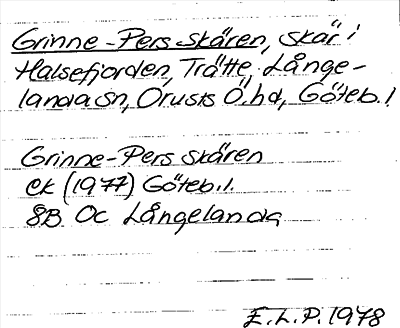 Grinne-Pers skären, skär i
Halsefjorden, Trätte, Långe-
landa sn, Orusts Ö. hd, Göteb. l
Grinne-Pers skären
ek (1977) Göteb. l.
8B Oc Långelanda
E.L.P. 1978